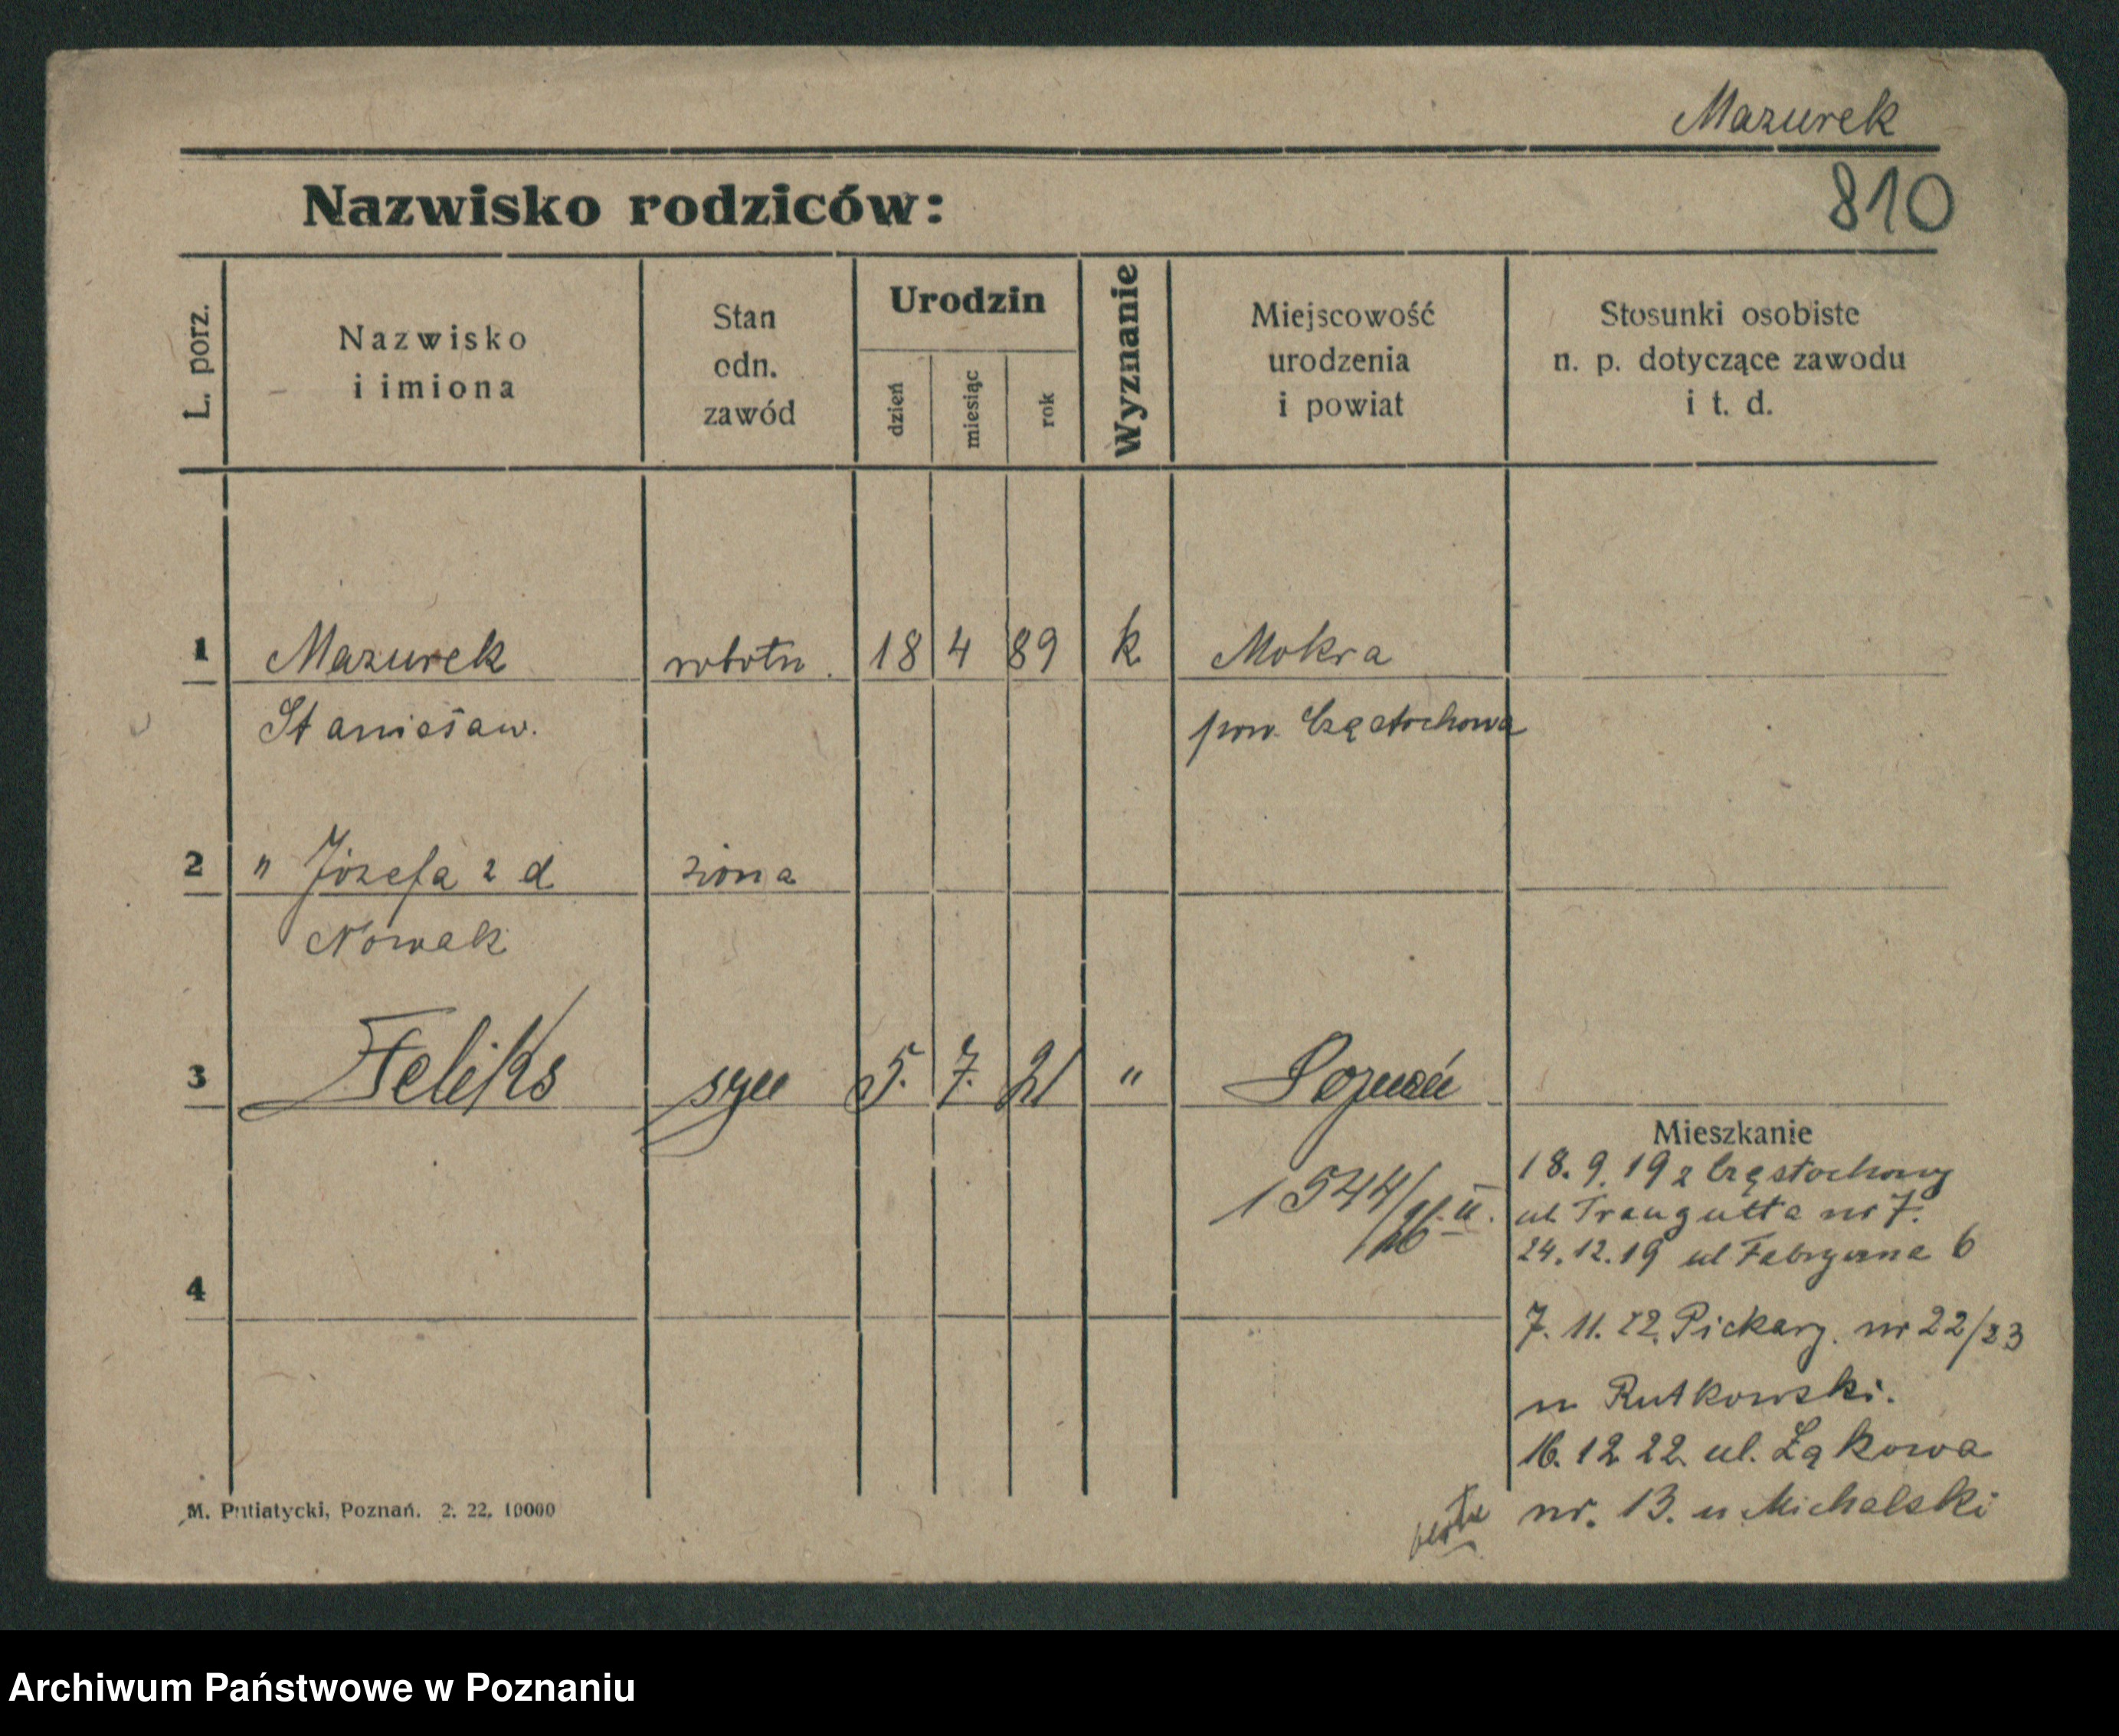 Mazurek
810
Nazwisko rodziców:
L. porz.
Nazwisko
i imiona
Stan
odn.
zawód
Urodzin
dzień
miesiąc
rok
Wyznanie
Miejscowość
urodzenia
i powiat
Stosunki osobiste
n. p. dotyczące zawodu
i t. d.
1 Mazurek robotn. 18 4 89 k Mokra
Stanisław. pow. Częstochowa
2 " Józefa z d żona
Nowak
3 Feliks syn 5. 7. 21 " Poznań
Mieszkanie
18. 9. 19 z Częstochowy
ul Traugutta nr 7.
1544/26 II.
24. 12. 19 ul Fabryczna 6
4
7. 11. 22. Piekary. nr 22/23
u Rutkowski.
16. 12 22. ul. Łąkowa
nr. 13. u Michalski
M. Putiatycki, Poznań. 2. 22. 10000
Archiwum Państwowe w Poznaniu